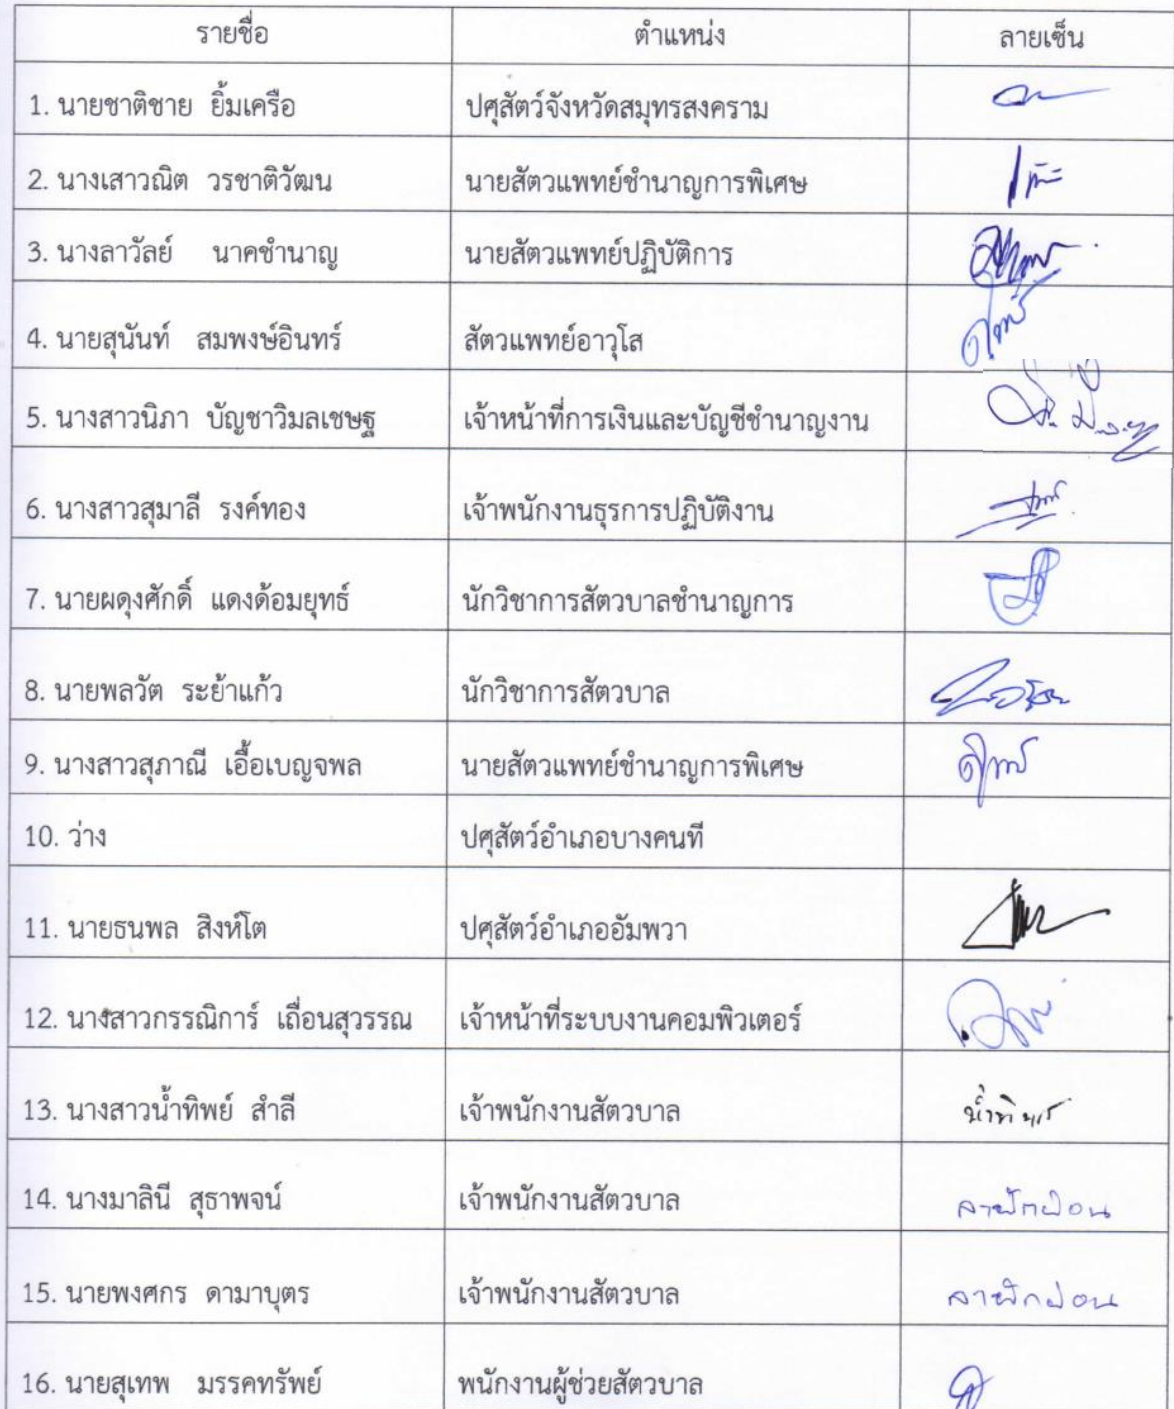 รายชื่อ ตำแหน่ง ลายเซ็น
1. นายชาติชาย ยิ้มเครือ ปศุสัตว์จังหวัดสมุทรสงคราม
2. นางเสาวณิต วรชาติวัฒน นายสัตวแพทย์ชำนาญการพิเศษ
3. นางลาวัลย์ นาคชำนาญ นายสัตวแพทย์ปฏิบัติการ
4. นายสุนันท์ สมพงษ์อินทร์ สัตวแพทย์อาวุโส
5. นางสาวนิภา บัญชาวิมลเชษฐ เจ้าหน้าที่การเงินและบัญชีชำนาญงาน
6. นางสาวสุมาลี รงค์ทอง เจ้าพนักงานธุรการปฏิบัติงาน
7. นายผดุงศักดิ์ แดงด้อมยุทธ์ นักวิชาการสัตวบาลชำนาญการ
8. นายพลวัต ระย้าแก้ว นักวิชาการสัตวบาล
9. นางสาวสุภาณี เอื้อเบญจพล นายสัตวแพทย์ชำนาญการพิเศษ
10. ว่าง ปศุสัตว์อำเภอบางคนที
11. นายธนพล สิงห์โต ปศุสัตว์อำเภออัมพวา
12. นางสาวกรรณิการ์ เถื่อนสุวรรณ เจ้าหน้าที่ระบบงานคอมพิวเตอร์
13. นางสาวน้ำทิพย์ สำลี เจ้าพนักงานสัตวบาล น้ำทิพย์
14. นางมาลินี สุธาพจน์ เจ้าพนักงานสัตวบาล ลาพักผ่อน
15. นายพงศกร ดามาบุตร เจ้าพนักงานสัตวบาล ลาพักผ่อน
16. นายสุเทพ มรรคทรัพย์ พนักงานผู้ช่วยสัตวบาล